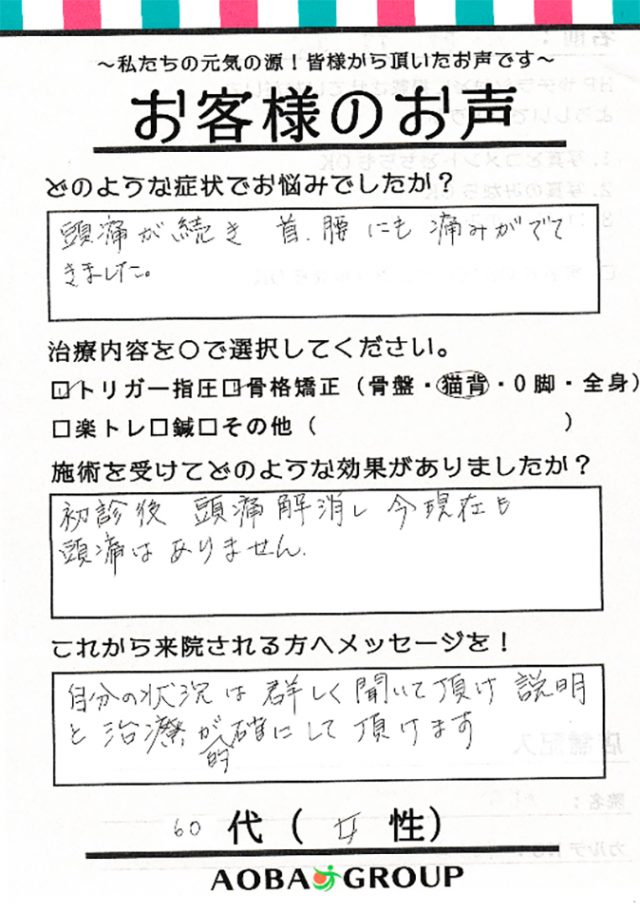 ～私たちの元気の源！皆様から頂いたお声です～
お客様のお声
どのような症状でお悩みでしたか？
頭痛が続き 首、腰にも痛みがでて
きました。
治療内容を〇で選択してください。
☑トリガー指圧☑骨格矯正（骨盤・猫背・O脚・全身）
□楽トレ□鍼□その他（　　　　　）
施術を受けてどのような効果がありましたか？
初診後 頭痛解消し 今現在も
頭痛はありません。
これから来院される方へメッセージを！
自分の状況は群しく聞いて頂け 説明
と治療が的確にして頂けます
60代（女性）
AOBA GROUP